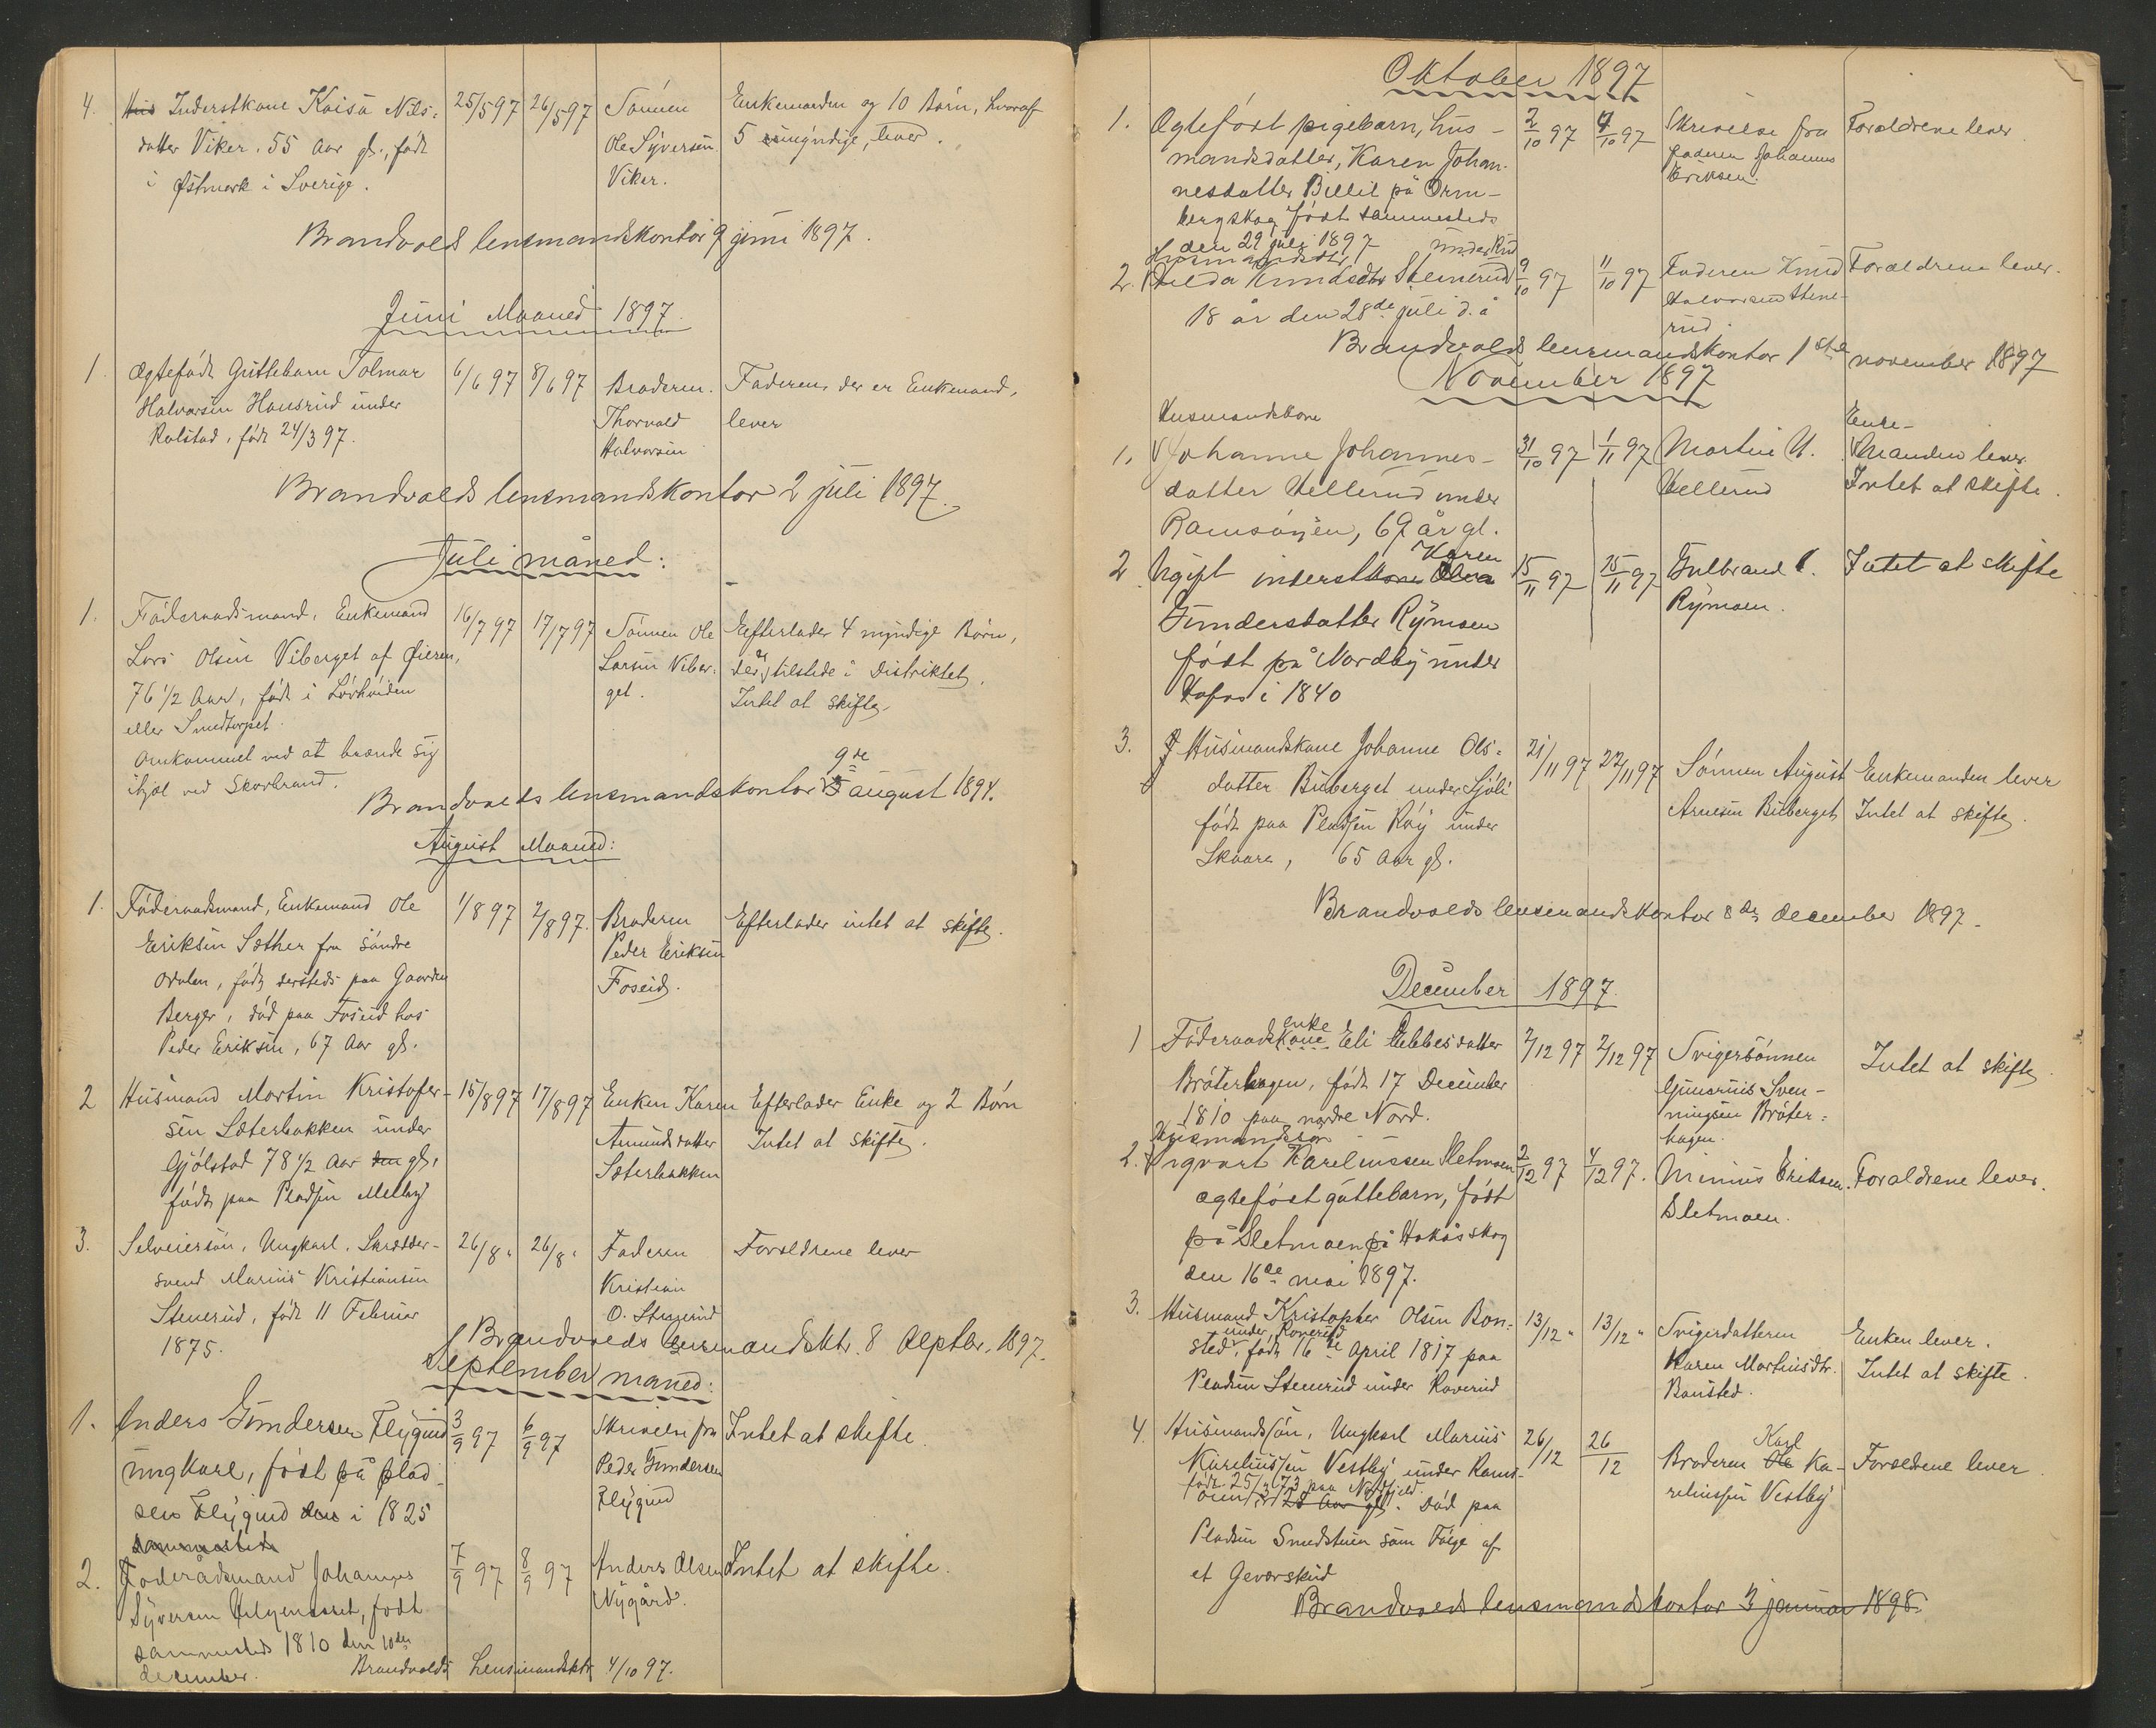 4. Inderstkone Kaisa Nils- 25/5 97 26/5 97 Sønnen Enkemanden og 10 Børn, hvoraf
datter Viker. 55 Aar gl., født Ole Syversen 5 umyndige, lever.
i Østmark i Sverige. Viker.
Brandvolds lensmandskontor 9 juni 1897.
Juni Maaned 1897.
1. Ægtefødt Guttebarn Tolmar 6/6 97 8/6 97 Broderen Faderen, der er Enkemand,
Halvorsen Hansrud under Thorvald lever
Rolstad, født 24/3 97. Halvorsen
Brandvolds lensmandskontor 2 juli 1897.
Juli måned:
1. Føderaadsmand, Enkemand 16/7 97 17/7 97 Sønnen Ole Efterlader 4 myndige Børn,
Lars Olsen Viberget af Øieren, Larsen Viber- der er tilstede i Distriktet.
76 1/2 Aar, født i Lövhöiden get. Intet at skifte.
eller Smedtorpet.
Omkommet ved at brænde sig
ihjel ved Skovbrand.
Brandvolds lensmandskontor 9de august 1897.
August Maaned:
1. Føderaadsmand, Enkemand Ole 1/8 97 2/8 97. Broderen Efterlader intet at skifte.
Eriksen Sæther fra søndre Peder Eriksen
Odalen, født dersteds paa Gaarden Foseid.
Berger, død paa Foseid hos
Peder Eriksen, 67 Aar gl.
2 Husmand Martin Kristofer- 15/8 97 17/8 97 Enken Karen Efterlader Enke og 2 Børn
sen Sæterbakken under Amundsdatter Intet at skifte.
Gjølstad 78 1/2 Aar den gl. Sæterbakken
født paa Pladsen Melby
3. Selveiersøn, Ungkarl, Skrædder- 26/8 " 26/8 " Faderen Forældrene lever
svend Marius Kristiansen Kristian
Stenerud, født 11 Februar O. Stenerud
1875. Brandvolds Lensmandsktr. 8 Septbr. 1897.
September måned:
1. Anders Gundersen Flygind 3/9 97 6/9 97 Skrivelse fra Intet at skifte.
ungkarl, født på plad- Peder Gundersen
sen Flygind den i 1825 Flygind
sammesteds
2. Føderådsmand Johannes 7/9 97 8/9 97 Anders Olsen Intet at skifte.
Syversen Helgeneset, født Nygård.
sammesteds 1810 den 10de
december. Brandvolds Lensmandsktr 4/10 97.
Oktober 1897
1. Ægtefødt pigebarn, hus- 2/10 97 4/10 97 Skrivelse fra Forældrene lever
mandsdatter, Karen Johan- faderen Johannes
nesdatter Billit på Orm- Eriksen.
bergskog født sammesteds
den 29 juli 1897
Husmandsdtr under Rud
2. Hilda Knudsdtr Stenerud 9/10 97 11/10 97 Faderen Knud Forældrene lever.
18 år den 28de juli d. å Halvorsen Stene-
rud.
Brandvolds lensmandskontor 1ste november 1897
November 1897
Husmandskone Enke-
1. Johanne Johannes- 31/10 97 1/11 97 Martin U. manden lever.
datter Hellerud under Hellerud Intet at skifte.
Ramsøyen, 69 år gl.
Karen
2. Ugift inderstkone Olava 15/11 97 15/11 97 Gulbrand Intet at skifte
Gundersdatter Rymoen Rymoen.
født på Nordby under
Hofos i 1840
3. Husmandskone Johanne Ols- 21/11 97 22/11 97 Sønnen August Enkemanden lever
datter Buberget under Sjöli Arnesen Buberget. Intet at skifte.
født paa Pladsen Røy under
Skaara, 65 Aar gl.
Brandvolds lensmandskontor 8de december 1897.
December 1897.
1 Føderaadskone enke Eli Ebbesdatter 2/12 97 2/12 97 Svigersønnen Intet at skifte.
Bråterhagen, født 17 December Gunerius Sven-
1810 paa nordre Nord. ningsen Bråter-
Husmandssøn hagen.
2. Sigvart Kareliussen Sletmoen 2/12 97 4/12 97. Minius Eriksen Forældrene lever.
ægtefødt guttebarn, født Sletmoen.
på Sletmoen på Hokåsskog
den 16de mai 1897.
3. Husmand Kristopher Olsen Bon- 13/12 " 13/12 " Svigerdatteren Enken lever.
sted, under Roverud født 16de April 1817 paa Karen Martinsdtr. Intet at skifte.
Pladsen Stenerud under Roverud Bonsted.
4. Husmandssøn, Ungkarl Marius 26/12 26/12 Broderen Ole Karl Ka- Forældrene lever
Kareliussen Vestby under Rams- reliussen Vestby
øien, født 25/3 73 paa Nordfjeld. 28 Aar gl. Død paa
Pladsen Smedstuen som Følge af
et Geværskud
Brandvolds lensmandskontor 3 januar 1898.